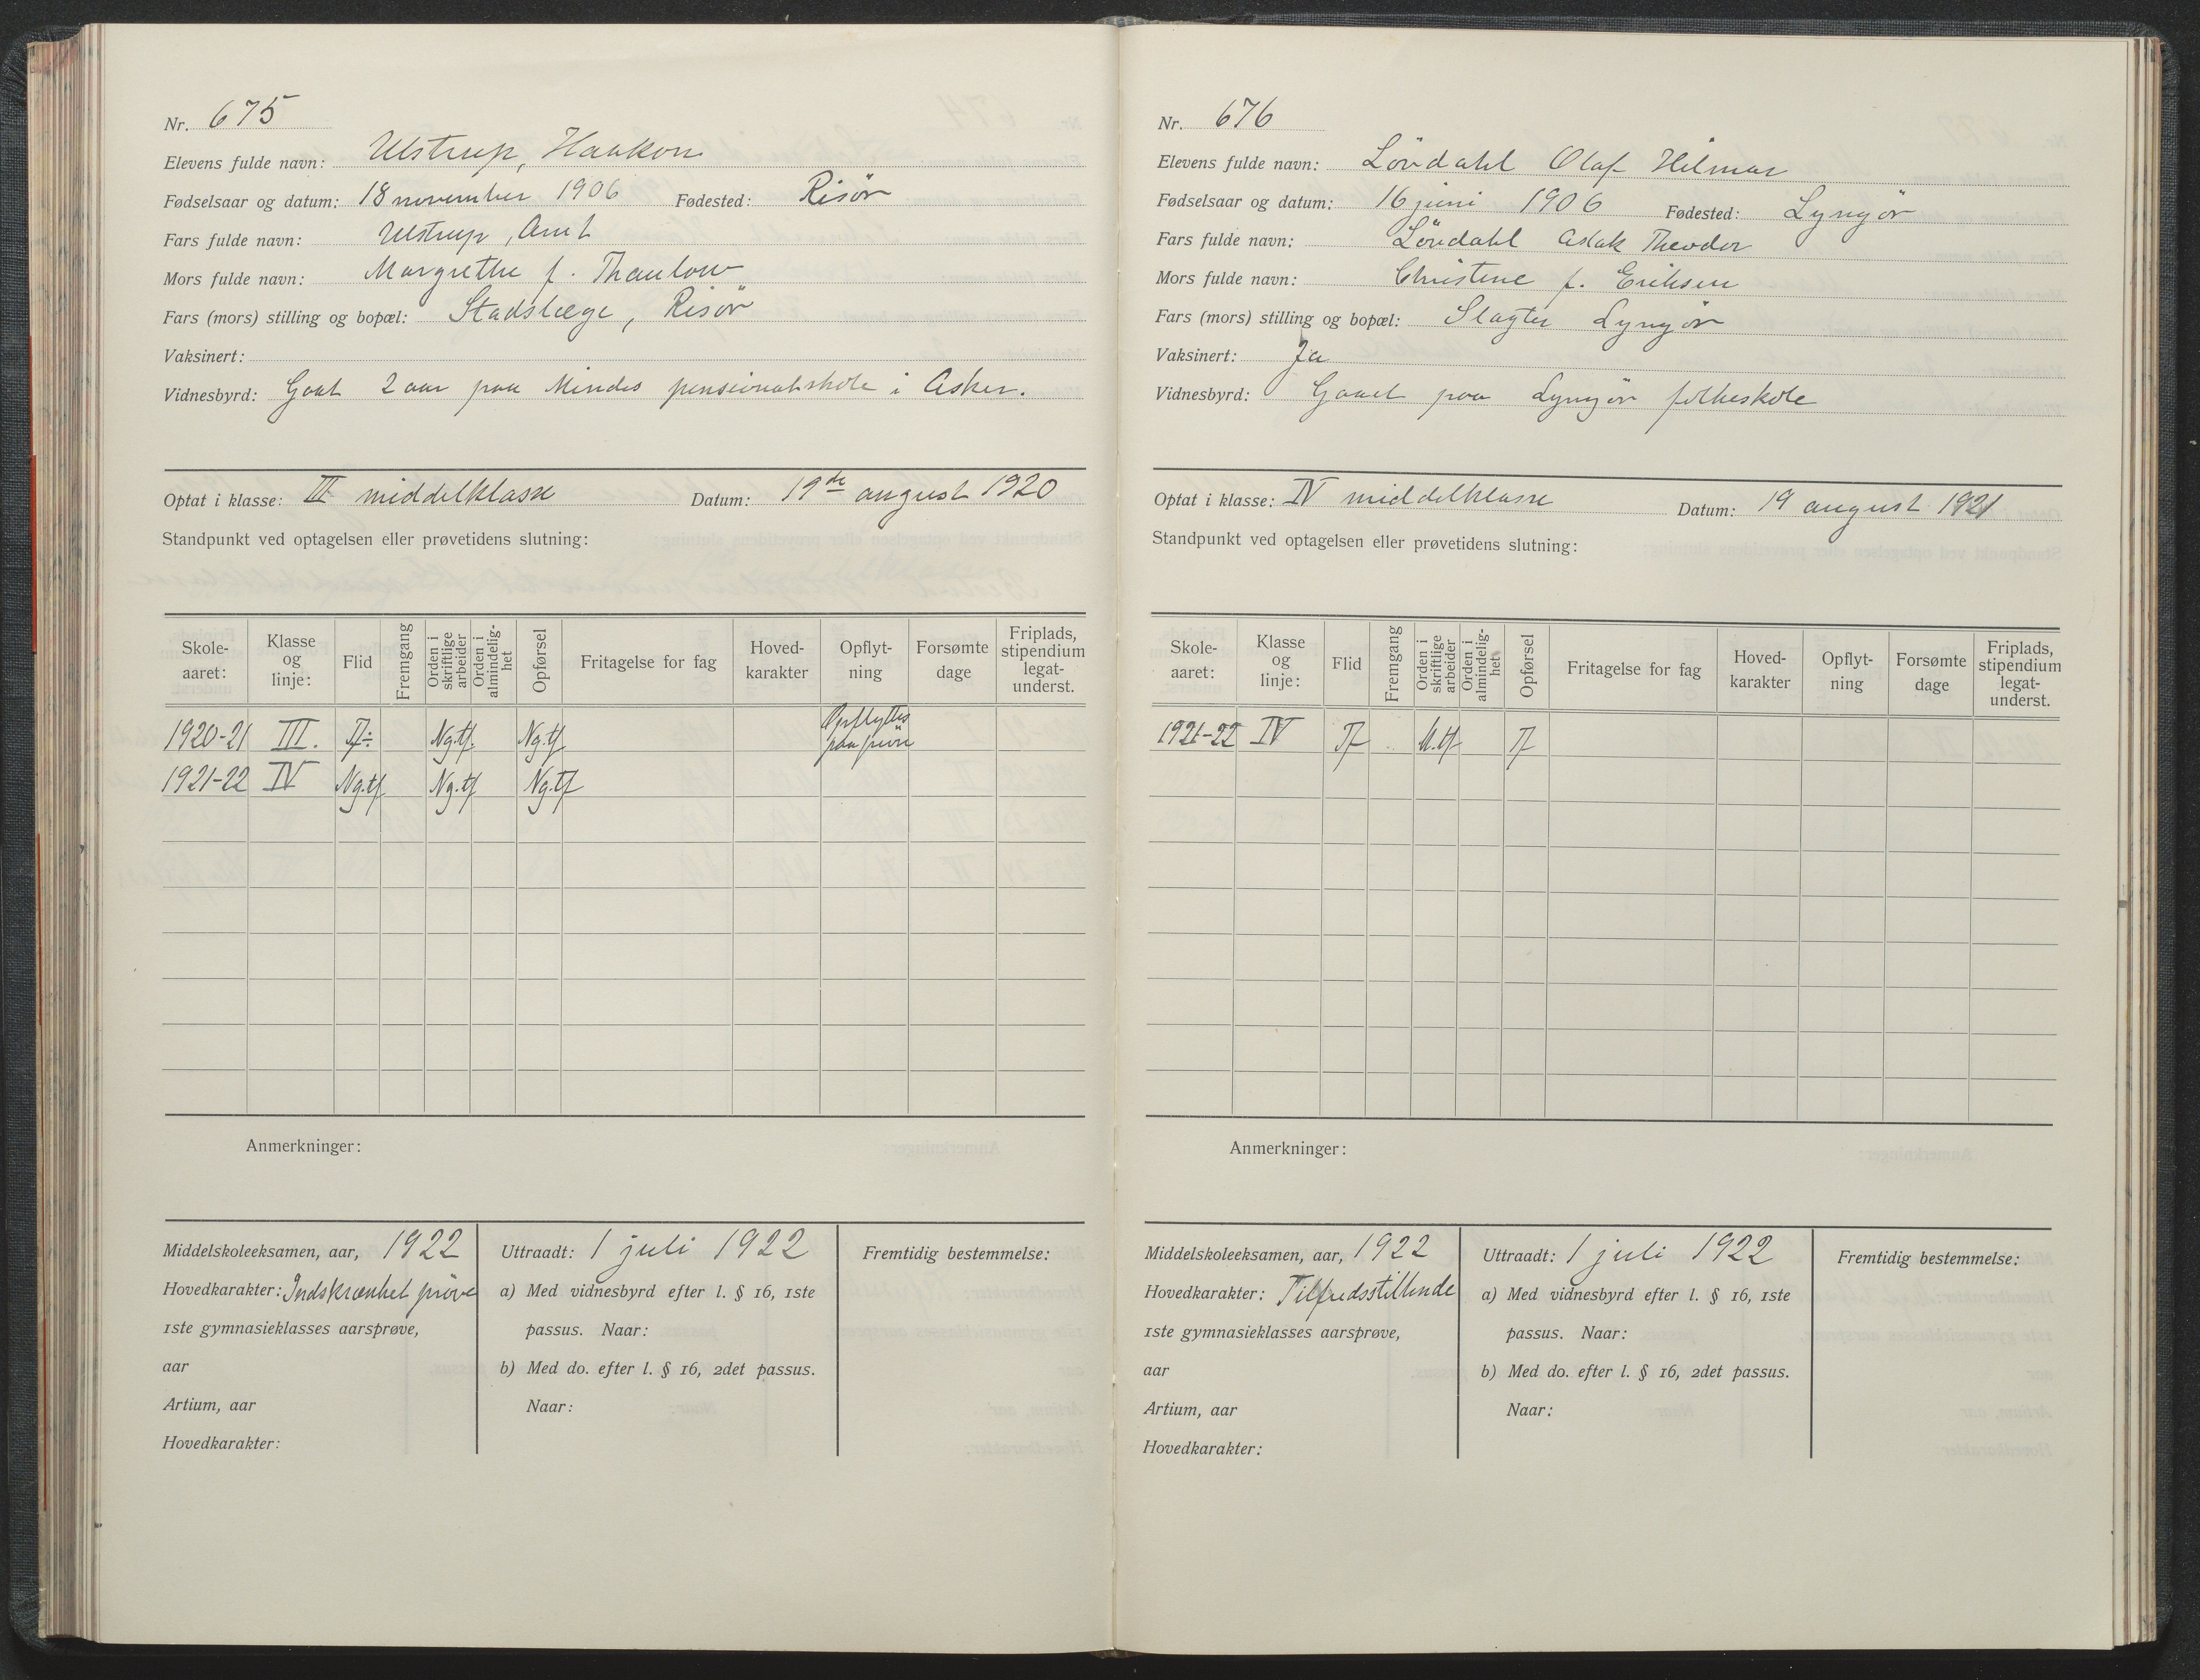 Nr. 675
Elevens fulde navn: Ulstrup, Haakon
Fødselsaar og datum: 18 november 1906 Fødested: Risör
Fars fulde navn: Ulstrup, Arnt
Mors fulde navn: Margrethe f. Thaulow
Fars (mors) stilling og bopæl: Stadslæge, Risör
Vaksinert:
Vidnesbyrd: Gaat 2 aar paa Mindes pensionatskole i Asker.
Optat i klasse: III middelklasse Datum: 19de august 1920
Standpunkt ved optagelsen eller prøvetidens slutning:
Skole-aaret: Klasse og linje: Flid Fremgang Orden i skriftlige arbeider Orden i almindelig-het Opførsel Fritagelse for fag Hoved-karakter Opflyt-ning Forsømte dage Friplads, stipendium legat-underst.
1920-21 III. Tf÷ Ng.tf. Ng.tf Opflyttes paa prøve
1921-22 IV Ng.tf Ng.tf Ng.tf
Anmerkninger:
Middelskoleeksamen, aar, 1922 Uttraadt: 1 juli 1922 Fremtidig bestemmelse:
Hovedkarakter: Indskrænket prøve a) Med vidnesbyrd efter l. § 16, 1ste
1ste gymnasieklasses aarsprøve, passus. Naar:
aar b) Med do. efter l. § 16, 2det passus.
Artium, aar Naar:
Hovedkarakter:
Nr. 676
Elevens fulde navn: Lövdahl Olaf Hilmar
Fødselsaar og datum: 16 juni 1906 Fødested: Lyngör
Fars fulde navn: Lövdahl Aslak Theodor
Mors fulde navn: Christine f. Eriksen
Fars (mors) stilling og bopæl: Slagter Lyngör
Vaksinert: Ja
Vidnesbyrd: Gaaet paa Lyngör folkeskole
Optat i klasse: IV middelklasse Datum: 19 august 1921
Standpunkt ved optagelsen eller prøvetidens slutning:
Skole-aaret: Klasse og linje: Flid Fremgang Orden i skriftlige arbeider Orden i almindelig-het Opførsel Fritagelse for fag Hoved-karakter Opflyt-ning Forsømte dage Friplads, stipendium legat-underst.
1921-22 IV Tf M.tf Tf
Anmerkninger:
Middelskoleeksamen, aar, 1922 Uttraadt: 1 juli 1922 Fremtidig bestemmelse:
Hovedkarakter: Tilfredsstillende a) Med vidnesbyrd efter l. § 16, 1ste
1ste gymnasieklasses aarsprøve, passus. Naar:
aar b) Med do. efter l. § 16, 2det passus.
Artium, aar Naar:
Hovedkarakter: